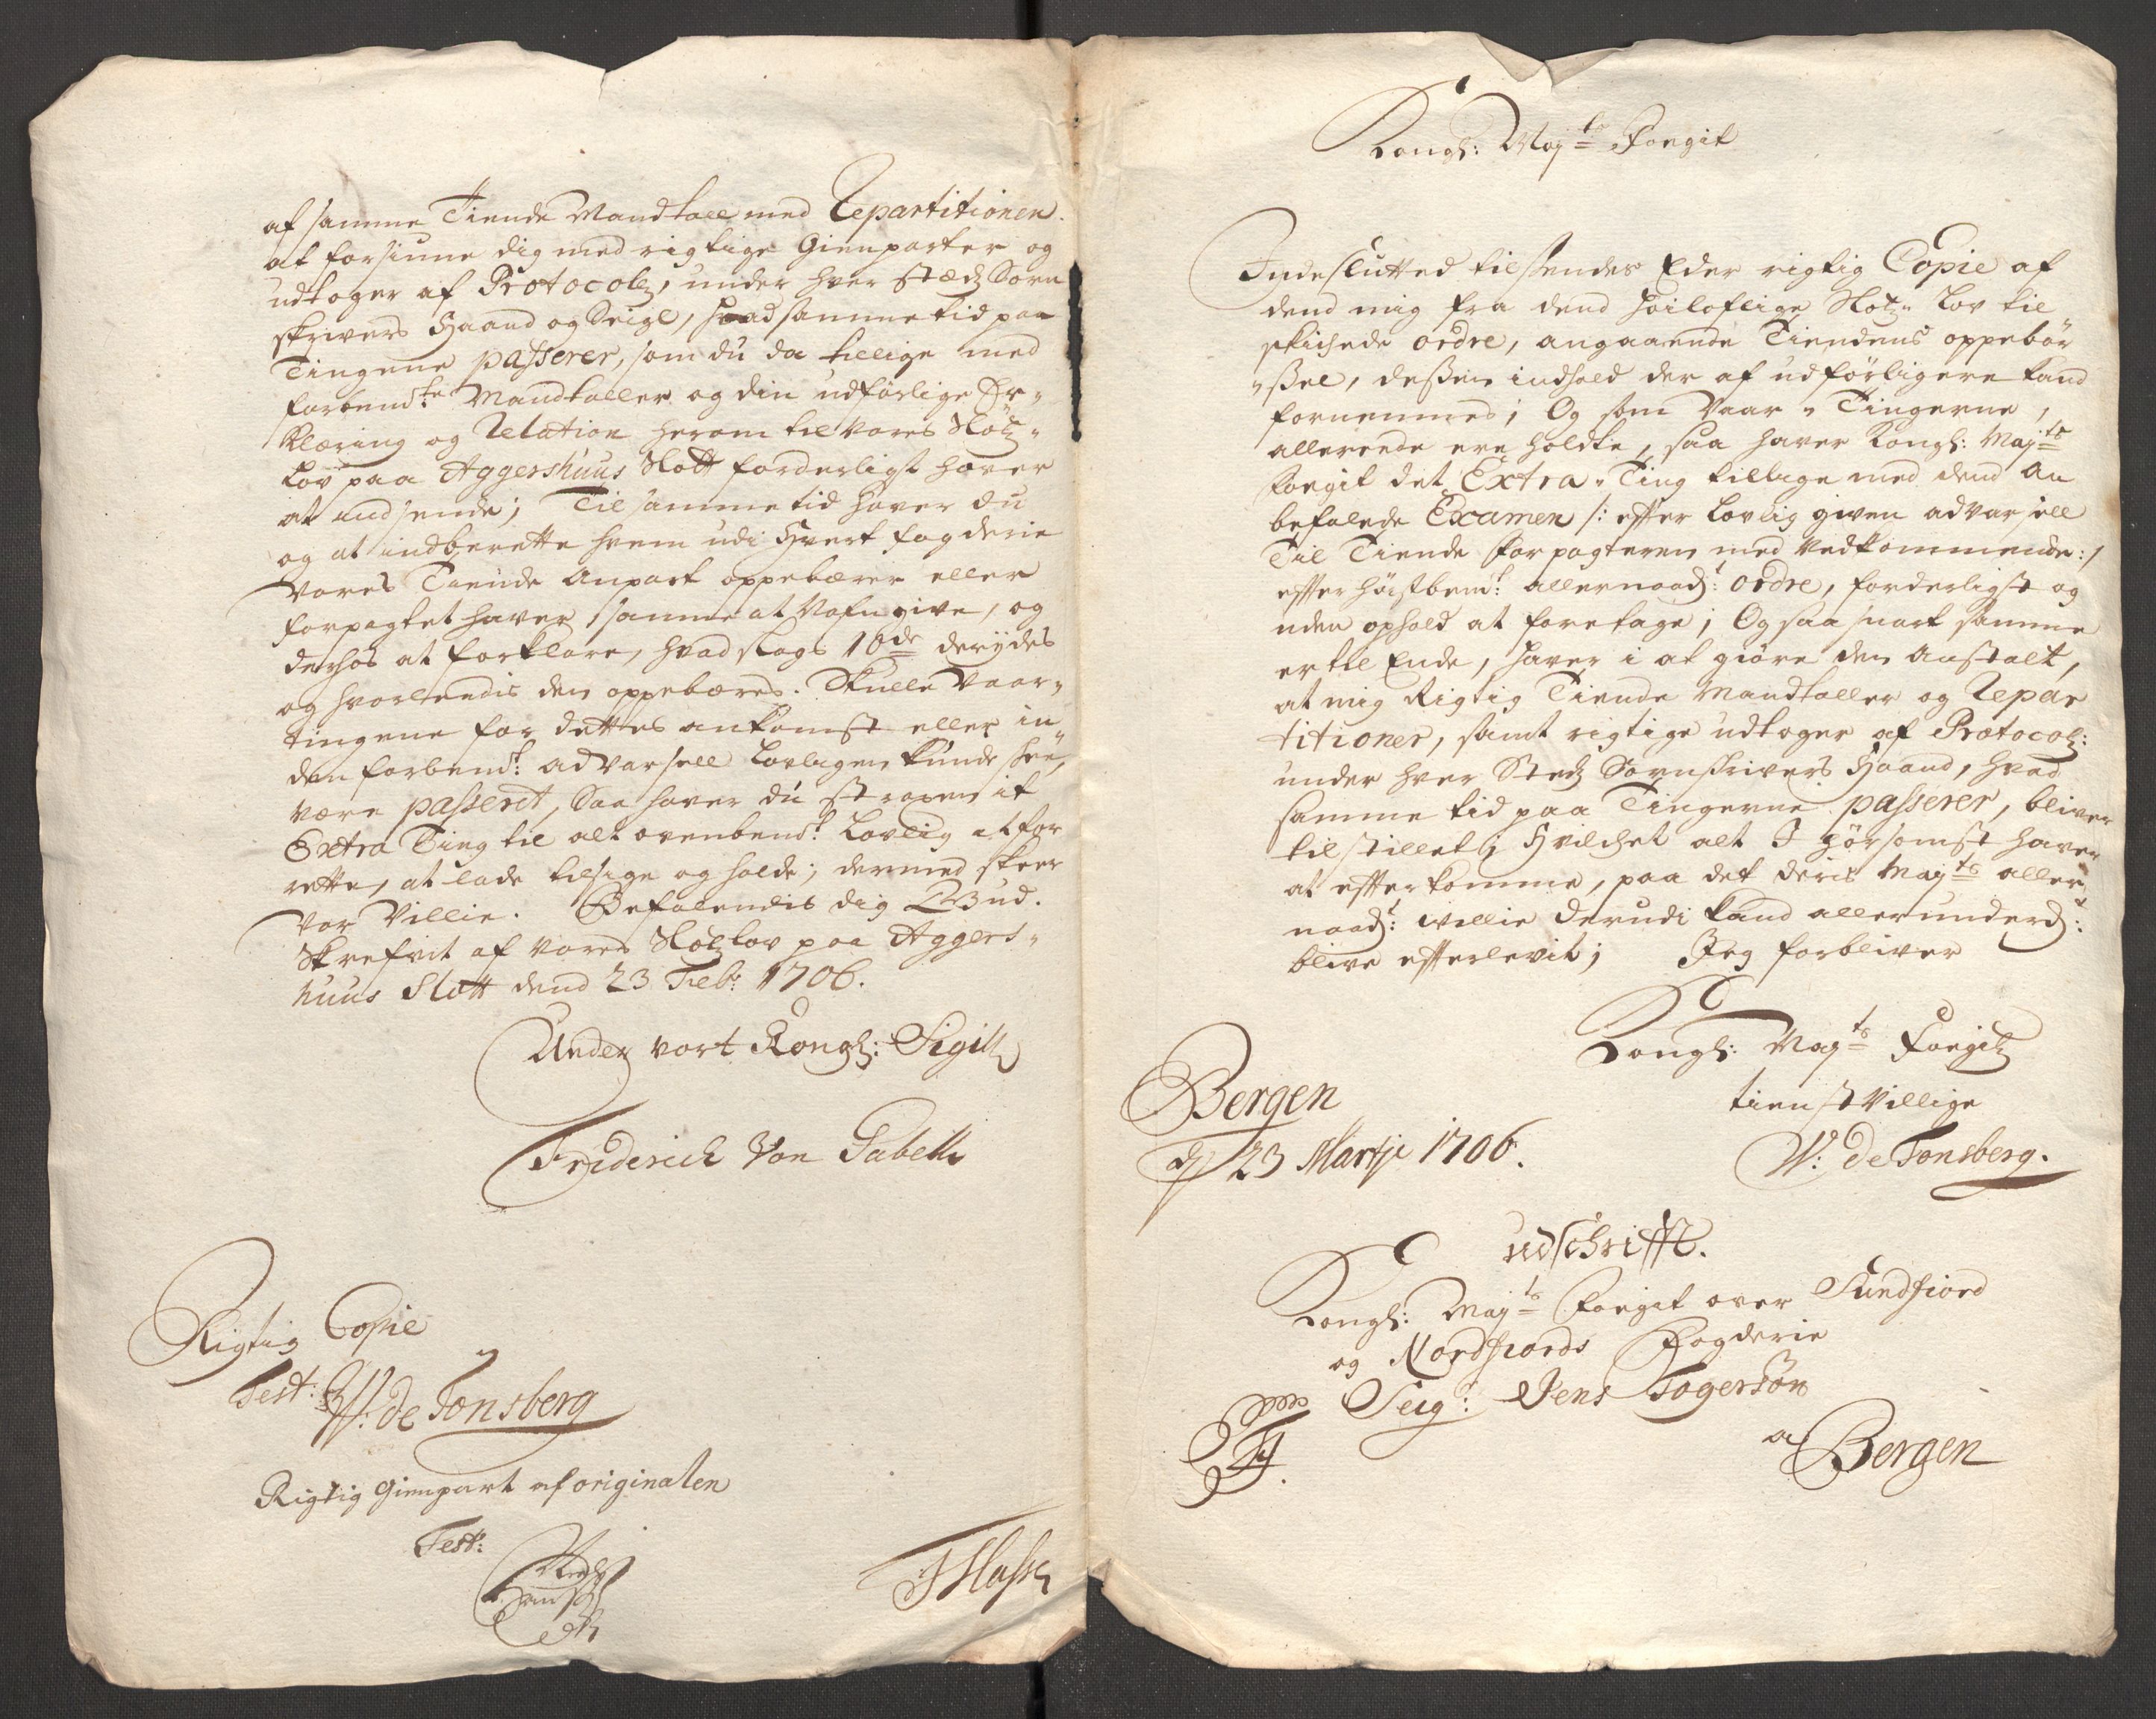 af samme Tiende Mandtall med Repartitionen
at forsiune dig med rigtige Gienparter og
udtoger af Protocoln, under hver stædz Sorn
skrivers Haand og Seigl, hvad samme tid paa
Tingene passerer, som du da tillige med
forbemte: Mandtaller og din udførlige Er-
klæring og Relation herom til Vores Slotz-
Lov paa Aggershuus Slott forderligst haver
at indsende; Til samme tid haver du
og at indberette hvem udi Hvert fogderie
Vores Tiende Anpart oppebærer eller
forpagtet haver, samme at Nafngive, og
derhos at forklare, hvad slags 10de der ÿdes
og hvorlendis den oppebæres. Skulle Vaar-
tingene for dettes ankomst eller in-
den forbemt: advarsell Lovligen kunde skee,
være passeret, Saa haver du strax it
Extra Ting til alt ovenbemt: Lovlig at for
rette, at lade tilsige og holde; dermed skeer
Vor Villie. Befalendis dig Gud.
Skrefvit af Vores Slotzlov paa Aggers-
huus Slott dend 23 Feb: 1706.
Under vort Kongl: Sigill
Friderich Von Gabell
Rigtig Copie
Test: W: de Tonsberg
Rigtig Gienpart af originalen
Test:
Kongl: Mayts Foegit
Indeslutted tilsendes Eder rigtig Copie af
dend mig fra dend høiloflige Slotz Lov til
skichede ordre, angaaende Tiendens oppebør
-ssel, dessen indhold der af udførligere kand
fornemmes; Og som Vaar-Tingerne,
allereede ere holdte, saa haver Kongl: Mayts
Foegit det Extra-Ting tillige med dend an
befalede Examen /: efter Lovlig given advarsell
Til Tiende forpagteren med Vedkommende :/
efter høistbemt: allernaadt: ordre, forderligst og
uden ophold at foretage; Og saa snart samme
er til Ende, haver i at giøre den Anstalt,
at mig Rigtig Tiende Mandtaller og Repar
titioner, samt rigtige udtoger af Protocol:
under hver Stedz Sornskrivers Haand, hvad
samme tid paa Tingerne passerer, bliver
tilstillet; Hvilchet alt I hørsomst haver
at efterkomme, paa det deris Mayts aller
naadt: willie derudi kand allerunderdt:
blive efterlevit; Jeg forbliver
Kongl: Mayts Foegitz
tienstvillige
Bergen
d 23 Martji 1706.
W: de Tonsberg.
udschrifft.
Kongl: Mayts Foegit over Sundfiord
og Nordfiords Fogderie
Seigr: Jens Fogersøn
a Bergen